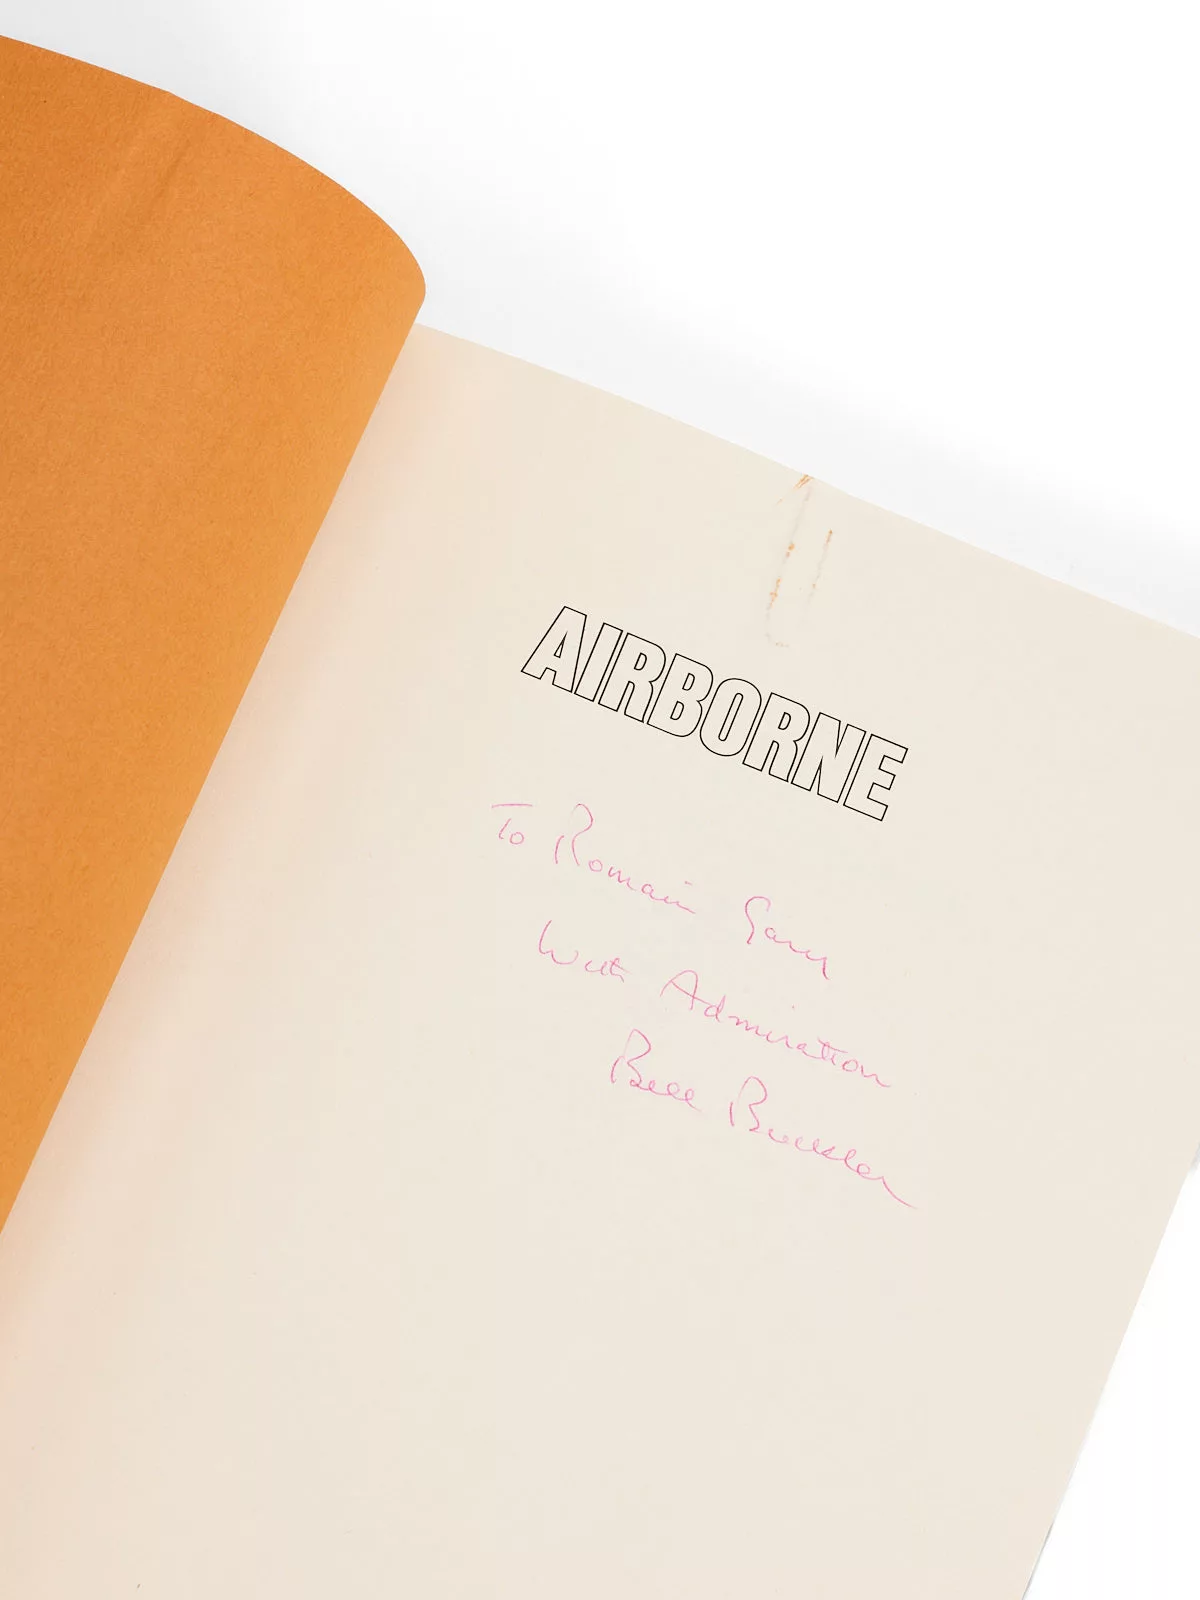 AIRBORNE
To Romain Gary
With Admiration
Bill Buckley